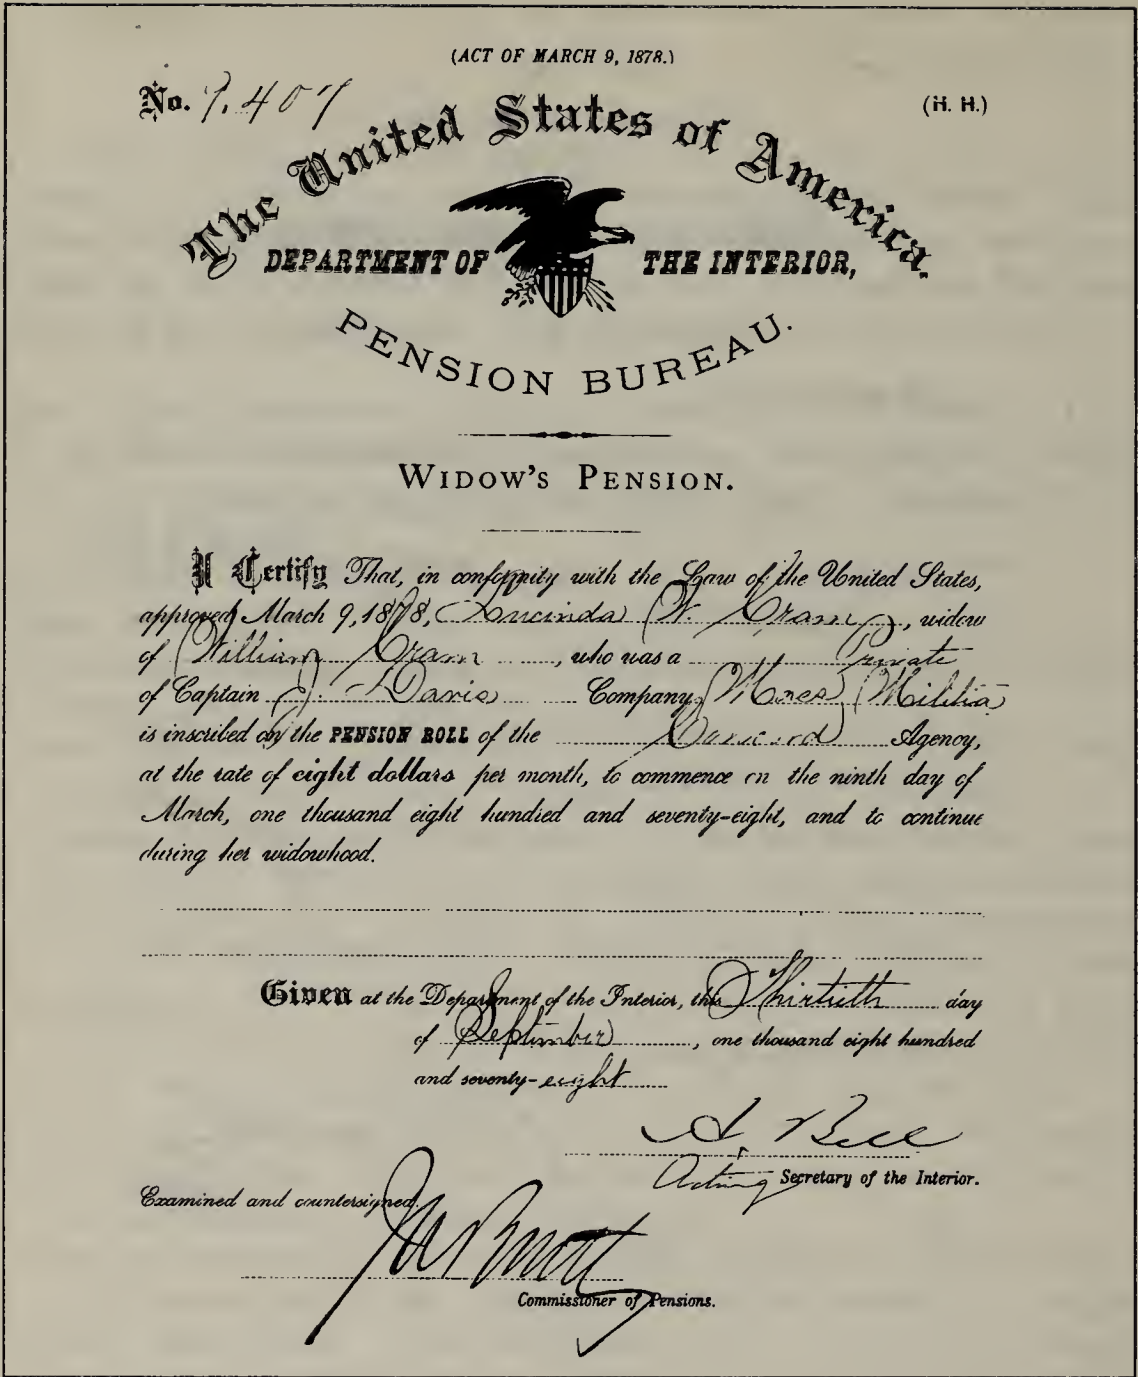 (ACT OF MARCH 9, 1878.)
No. 7.407
(H. H.)
The United States of America.
DEPARTMENT OF THE INTERIOR,
PENSION BUREAU.
WIDOW'S PENSION.
I Certify That, in conformity with the Law of the United States,
approved March 9, 1878, Lucinda W. Cram, widow
of William Cram, who was a Private
of Captain J. Davis Company, Mass Militia
is inscribed on the PENSION ROLL of the Concord Agency,
at the rate of eight dollars per month, to commence on the ninth day of
March, one thousand eight hundred and seventy-eight, and to continue
during her widowhood.
Given at the Department of the Interior, this Thirtieth day
of September, one thousand eight hundred
and seventy-eight
A. Bell
Acting Secretary of the Interior.
Examined and countersigned.
Commissioner of Pensions.